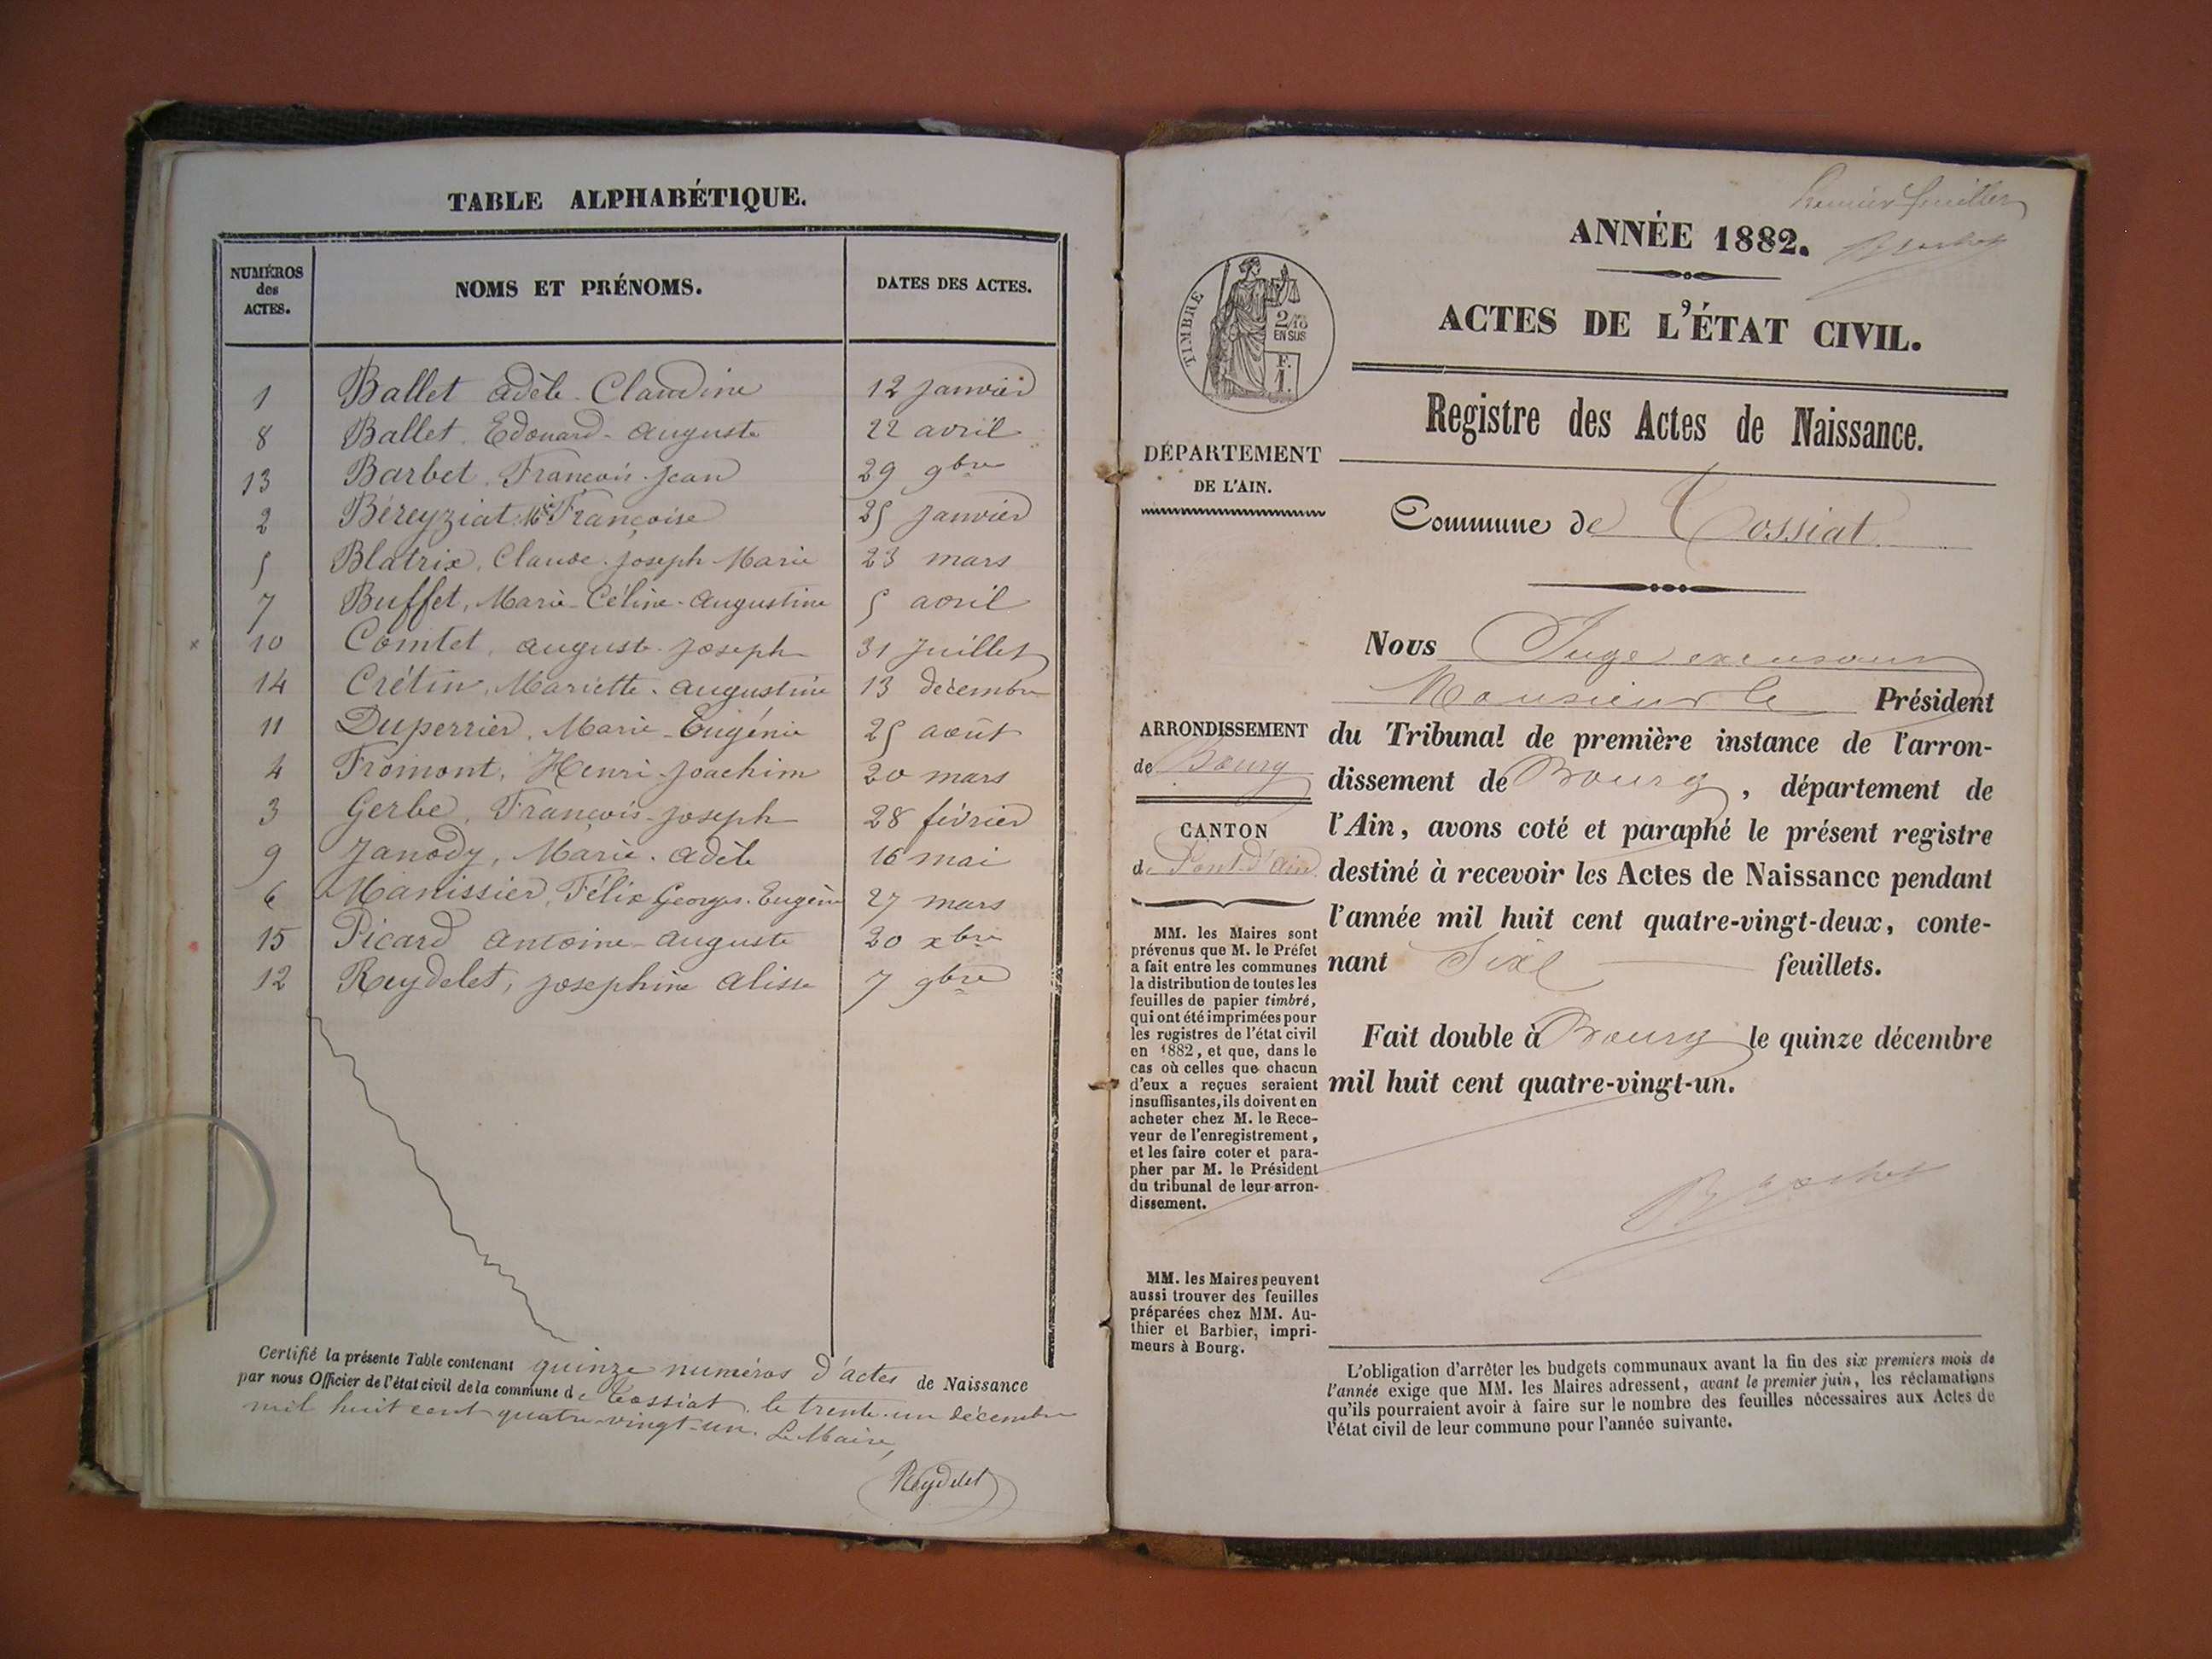 TABLE ALPHABÉTIQUE.
NUMÉROS des ACTES. NOMS ET PRÉNOMS. DATES DES ACTES.
1 Ballet Adèle-Claudine 12 Janvier
8 Ballet Edouard-Auguste 22 avril
13 Barbet François-Jean 29 9bre
2 Béreyziat Mie Françoise 25 Janvier
5 Blatrix, Claude-Joseph-Marie 23 mars
7 Buffet, Marie-Céline-Augustine 5 avril
10 Comtet, Auguste-Joseph 31 Juillet
14 Crétin, Mariette-Augustine 13 décembre
11 Duperrier, Marie-Eugénie 25 août
4 Fromont, Henri-Joachim 20 mars
3 Gerbe, François-Joseph 28 février
9 Janody, Marie-Adèle 16 mai
6 Manissier, Félix Georges-Eugène 27 mars
15 Picard Antoine-Auguste 20 xbre
12 Reydelet, Josephine Alisse 7 9bre
Certifié la présente Table contenant quinze numéros d'actes de Naissance
par nous Officier de l'état civil de la commune de Tossiat, le trente-un décembre
mil huit cent quatre-vingt-un. Le Maire,
Reydelet
Premier feuillet
ANNÉE 1882.
ACTES DE L'ÉTAT CIVIL.
TIMBRE
2/10 EN SUS
F. 1.
Registre des Actes de Naissance.
DÉPARTEMENT
DE L'AIN.
Commune de Tossiat
ARRONDISSEMENT
de Bourg
CANTON
de Pont-d'Ain
MM. les Maires sont
prévenus que M. le Préfet
a fait entre les communes
la distribution de toutes les
feuilles de papier timbré,
qui ont été imprimées pour
les registres de l'état civil
en 1882, et que, dans le
cas où celles que chacun
d'eux a reçues seraient
insuffisantes, ils doivent en
acheter chez M. le Rece-
veur de l'enregistrement,
et les faire coter et para-
pher par M. le Président
du tribunal de leur arron-
dissement.
MM. les Maires peuvent
aussi trouver des feuilles
préparées chez MM. Au-
thier et Barbier, impri-
meurs à Bourg.
Nous Juge
Monsieur le Président
du Tribunal de première instance de l'arron-
dissement de Bourg, département de
l'Ain, avons coté et paraphé le présent registre
destiné à recevoir les Actes de Naissance pendant
l'année mil huit cent quatre-vingt-deux, conte-
nant Six feuillets.
Fait double à Bourg le quinze décembre
mil huit cent quatre-vingt-un.
L'obligation d'arrêter les budgets communaux avant la fin des six premiers mois de
l'année exige que MM. les Maires adressent, avant le premier juin, les réclamations
qu'ils pourraient avoir à faire sur le nombre des feuilles nécessaires aux Actes de
l'état civil de leur commune pour l'année suivante.